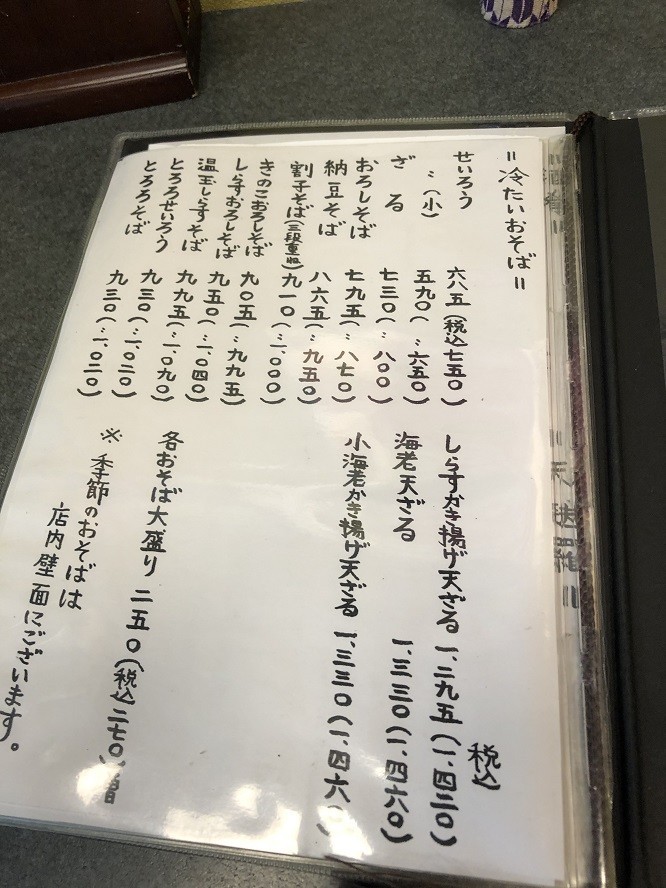 =冷たいおそば=
せいろう 六八五(税込七五〇)
〃(小) 五九〇(〃六五〇)
ざる 七三〇(〃八〇〇)
おろしそば 七九五(〃八七〇)
納豆そば 八六五(〃九五〇)
割子そば(三段重ね) 九一〇(〃一、〇〇〇)
きのこおろしそば 九〇五(〃九九五)
しらすおろしそば 九五〇(〃一、〇四〇)
温玉しらすそば 九九五(〃一、〇九〇)
とろろせいろう 九三〇(〃一、〇二〇)
とろろそば 九三〇(〃一、〇二〇)
税込
しらすかき揚げ天ざる 一、二九五(一、四二〇)
海老天ざる 一、三三〇(一、四六〇)
小海老かき揚げ天ざる 一、三三〇(一、四六〇)
各おそば大盛り 二五〇(税込二七〇)増
※ 季節のおそばは
店内壁面にございます。